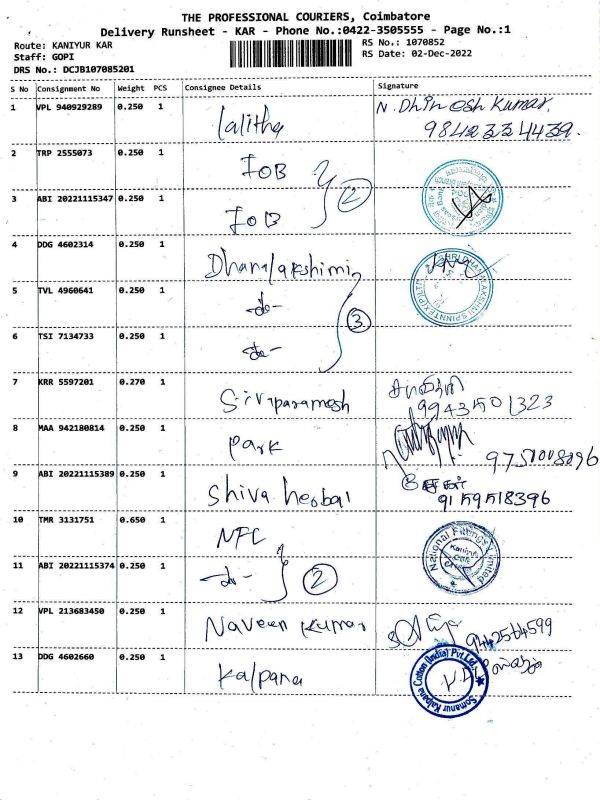 THE PROFESSIONAL COURIERS, Coimbatore
Delivery Runsheet - KAR - Phone No.:0422-3505555 - Page No.:1
Route: KANIYUR KAR
RS No.: 1070852
Staff: GOPI
RS Date: 02-Dec-2022
DRS No.: DCJB107085201
S No Consignment No Weight PCS Consignee Details Signature
1 VPL 940929289 0.250 1 lalitha N. Dhinesh Kumar.
9842334439.
2 TRP 2555073 0.250 1 IOB
3 ABI 20221115347 0.250 1 IOB 2
4 DDG 4602314 0.250 1 Dhanalakshimi
5 TVL 4960641 0.250 1 -do-
3
6 TSI 7134733 0.250 1 -do-
7 KRR 5597201 0.270 1 Sivaparamesh
8 MAA 942180814 0.250 1 Park
9 ABI 20221115389 0.250 1 Shiva herbal
9159518396
10 TMR 3131751 0.650 1 NFC National Fittings Limited
11 ABI 20221115374 0.250 1 -do- 2
12 VPL 213683450 0.250 1 Naveen Kumar 9442564599
13 DDG 4602660 0.250 1 Kalpana Somanur Kalpana Cotton (India) Pvt Ltd.